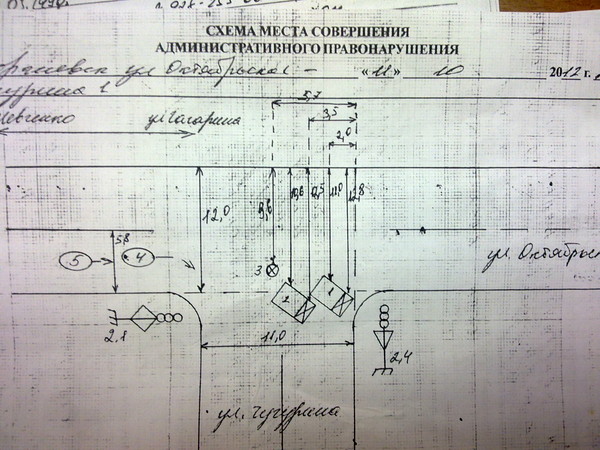 СХЕМА МЕСТА СОВЕРШЕНИЯ
АДМИНИСТРАТИВНОГО ПРАВОНАРУШЕНИЯ
ул Октябрьская –
«11» 10 2012 г.
ул Гагарина
5,7
3,5
2,0
12,0
9,6
10,6
12,5
11,0
12,8
5,8
5
4
3
2
1
ул. Октябрьс
2,1
11,0
2,4
ул. Чугурина